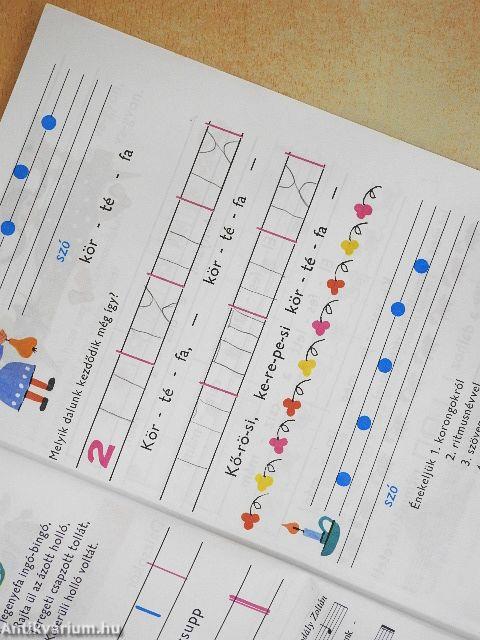 szó
kör - té - fa
Melyik dalunk kezdődik még így?
2
Kör - té - fa, — kör - té - fa —
Kő-rö-si, ke-re-pe-si kör - té - fa —
szó
Énekeljük 1. korongokról
2. ritmusnévvel
3. szöveg
egenyefa ingó-bingó,
hajta ül az ázott holló,
egeti csapzott tollát,
erüli holló voltát.
supp
dály Zoltán
Antikvárium.hu